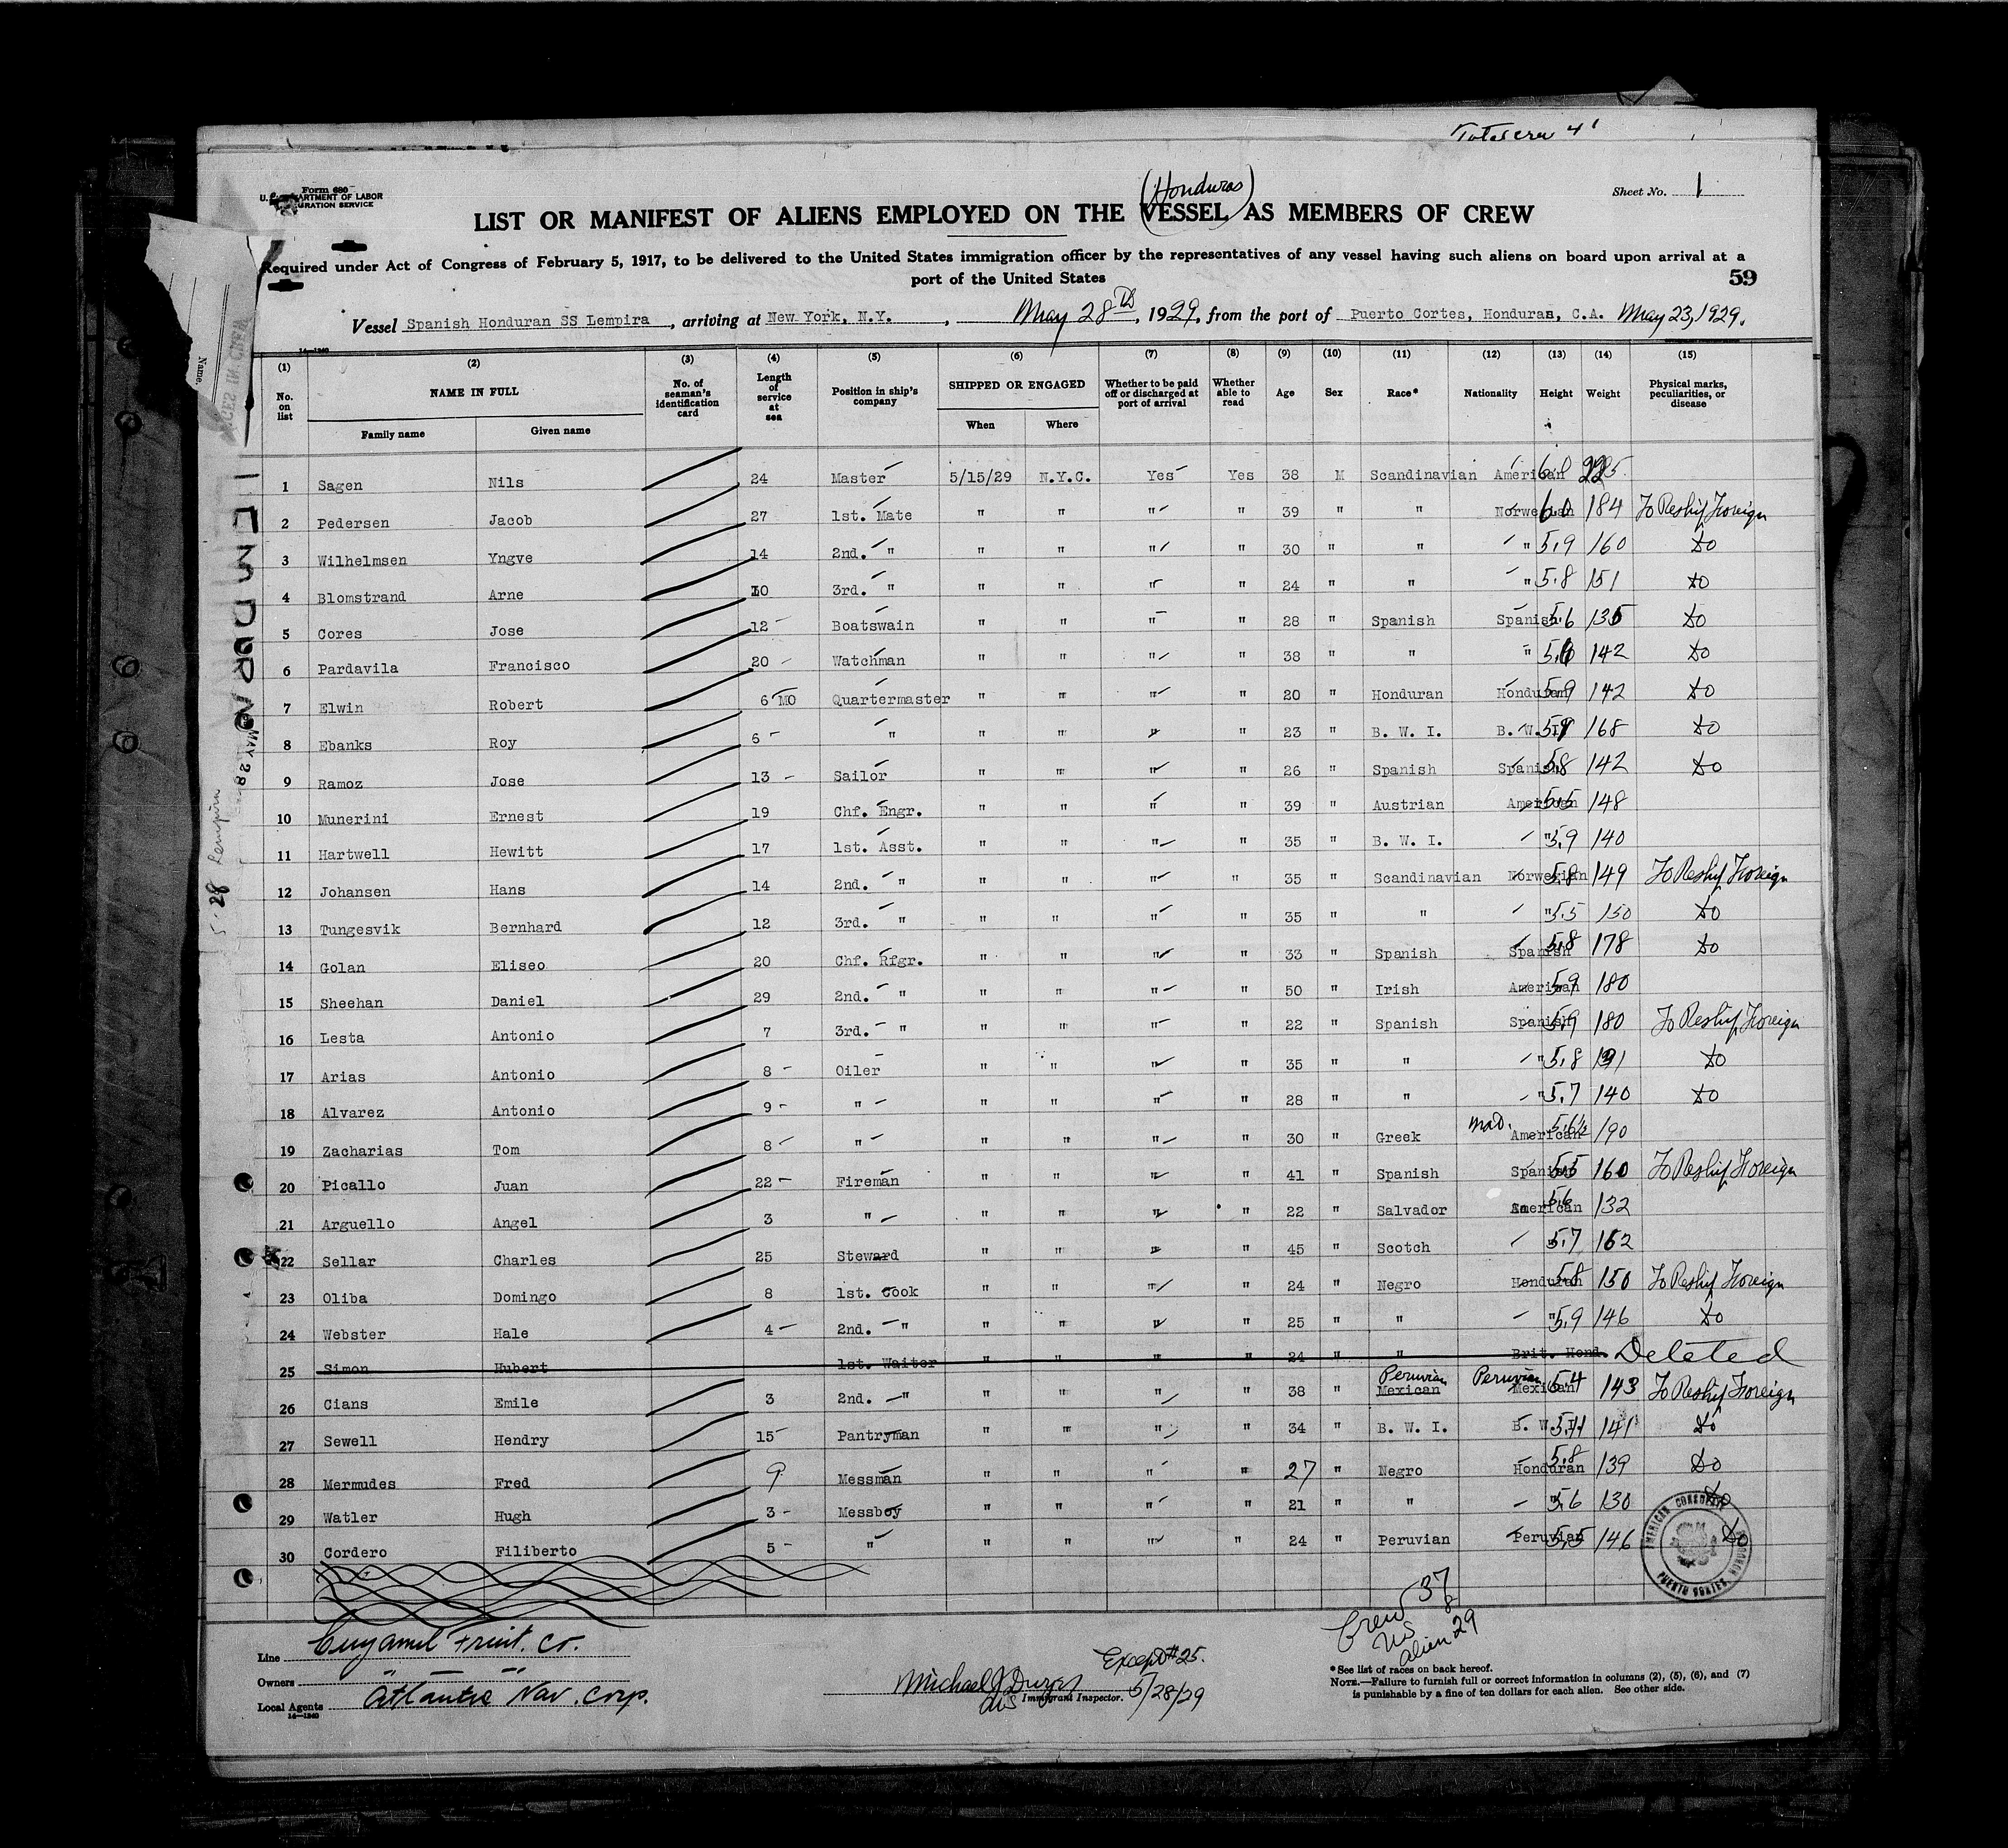 Total crew 41
Form 680
U. S. DEPARTMENT OF LABOR
IMMIGRATION SERVICE
(Honduras)
Sheet No. 1
LIST OR MANIFEST OF ALIENS EMPLOYED ON THE VESSEL AS MEMBERS OF CREW
Required under Act of Congress of February 5, 1917, to be delivered to the United States immigration officer by the representatives of any vessel having such aliens on board upon arrival at a
port of the United States
59
Vessel Spanish Honduran SS Lempira, arriving at New York, N.Y., May 28th, 1929, from the port of Puerto Cortes, Honduras, C.A. May 23, 1929.
14-1240
(1) (2) (3) (4) (5) (6) (7) (8) (9) (10) (11) (12) (13) (14) (15)
No. on list NAME IN FULL No. of seaman's identification card Length of service at sea Position in ship's company SHIPPED OR ENGAGED Whether to be paid off or discharged at port of arrival Whether able to read Age Sex Race* Nationality Height Weight Physical marks, peculiarities, or disease
Family name Given name When Where
1 Sagen Nils 24 Master 5/15/29 N.Y.C. Yes Yes 38 M Scandinavian American 6.0 225
2 Pedersen Jacob 27 1st. Mate " " " " 39 " " Norwegian 6.0 184 To Reship Foreign
3 Wilhelmsen Yngve 14 2nd. " " " " " 30 " " " 5.9 160 Do
4 Blomstrand Arne 10 3rd. " " " " " 24 " " " 5.8 151 Do
5 Cores Jose 12 Boatswain " " " " 28 " Spanish Spanish 5.6 135 Do
6 Pardavila Francisco 20 Watchman " " " " 38 " " " 5.6 142 Do
7 Elwin Robert 6 MO Quartermaster " " " " 20 " Honduran Honduran 5.9 142 Do
8 Ebanks Roy 6 " " " " " 23 " B. W. I. B. W. I. 5.9 168 Do
9 Ramoz Jose 13 Sailor " " " " 26 " Spanish Spanish 5.8 142 Do
10 Munerini Ernest 19 Chf. Engr. " " " " 39 " Austrian American 5.5 148
11 Hartwell Hewitt 17 1st. Asst. " " " " 35 " B. W. I. " 5.9 140
12 Johansen Hans 14 2nd. " " " " " 35 " Scandinavian Norwegian 5.8 149 To Reship Foreign
13 Tungesvik Bernhard 12 3rd. " " " " " 35 " " " 5.5 150 Do
14 Golan Eliseo 20 Chf. Rfgr. " " " " 33 " Spanish Spanish 5.8 178 Do
15 Sheehan Daniel 29 2nd. " " " " " 50 " Irish American 5.9 180
16 Lesta Antonio 7 3rd. " " " " " 22 " Spanish Spanish 5.9 180 To Reship Foreign
17 Arias Antonio 8 Oiler " " " " 35 " " " 5.8 Do
18 Alvarez Antonio 9 " " " " " 28 " " " 5.7 140 Do
19 Zacharias Tom 8 " " " " " 30 " Greek American 5.6½ 190
20 Picallo Juan 22 Fireman " " " " 41 " Spanish Spanish 5.5 160 To Reship Foreign
21 Arguello Angel 3 " " " " " 22 " Salvador American 5.6 132
22 Sellar Charles 25 Steward " " " " 45 " Scotch " 5.7 162
23 Oliba Domingo 8 1st. Cook " " " " 24 " Negro Honduran 5.8 150 To Reship Foreign
24 Webster Hale 4 2nd. " " " " " 25 " " " 5.9 146 Do
25 Simon Hubert 1st. Waiter " " " " 24 " " Brit. Hond. Deleted
Peruvian Peruvian
26 Cians Emile 3 2nd. " " " " " 38 " Mexican Mexican 5.4 143 To Reship Foreign
27 Sewell Hendry 15 Pantryman " " " " 34 " B. W. I. B. W. I. 5.11 141 Do
28 Mermudes Fred 9 Messman " " " " 27 " Negro Honduran 5.8 139 Do
29 Watler Hugh 3 Messboy " " " " 21 " " " 5.6 130 Do
30 Cordero Filiberto 5 " " " " " 24 " Peruvian Peruvian 5.5 146 Do
AMERICAN CONSULATE PUERTO CORTES, HONDURAS
Crew 37
US 8
Alien 29
Line Cuyamel Fruit. Co.
Owners " " "
Local Agents Atlantic Nav. Corp.
14-1240
Except #25.
Michael J Dwyer
Immigrant Inspector. 5/28/29
* See list of races on back hereof.
NOTE.—Failure to furnish full or correct information in columns (2), (5), (6), and (7)
is punishable by a fine of ten dollars for each alien. See other side.
Name.
MAY 28
5-28 Lempira